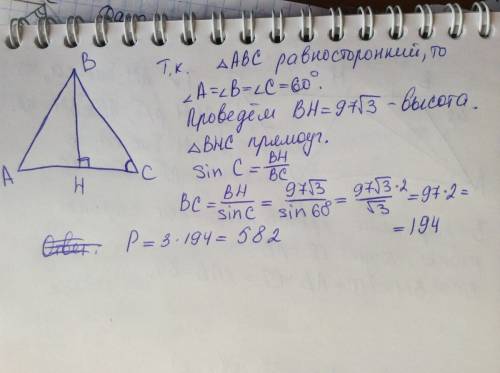 B
A
H
C
Т.к. △ABC равносторонний, то
∠A=∠B=∠C=60°.
Проведём BH=97√3 - высота.
△BHC прямоуг.
sin C = BH/BC
BC = BH/sin C = 97√3/sin 60° = 97√3·2/√3 = 97·2 =
= 194
Ответ: P = 3·194 = 582